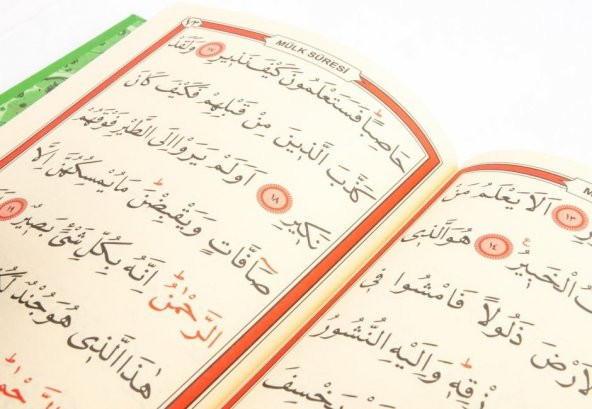 ١٣ اَلَا يَعْلَمُ مَنْ
الْخَبِيرُ ١٤ هُوَ الَّذِي
ذَلُولاً فَامْشُوا فِي
وَاِلَيْهِ النُّشُورُ
يَخْسِفَ
MÜLK SÛRESİ
حَاصِباً فَسَتَعْلَمُونَ كَيْفَ نَذِيرِ ١٧ وَلَقَدْ
كَذَّبَ الَّذِينَ مِنْ قَبْلِهِمْ فَكَيْفَ كَانَ
نَكِيرِ ١٨ اَوَلَمْ يَرَوْا اِلَى الطَّيْرِ فَوْقَهُمْ
صَافَّاتٍ وَيَقْبِضْنَ مَا يُمْسِكُهُنَّ اِلَّا
الرَّحْمٰنُ اِنَّهُ بِكُلِّ شَيْءٍ بَصِيرٌ ١٩
هٰذَا الَّذِي هُوَ جُنْدٌ